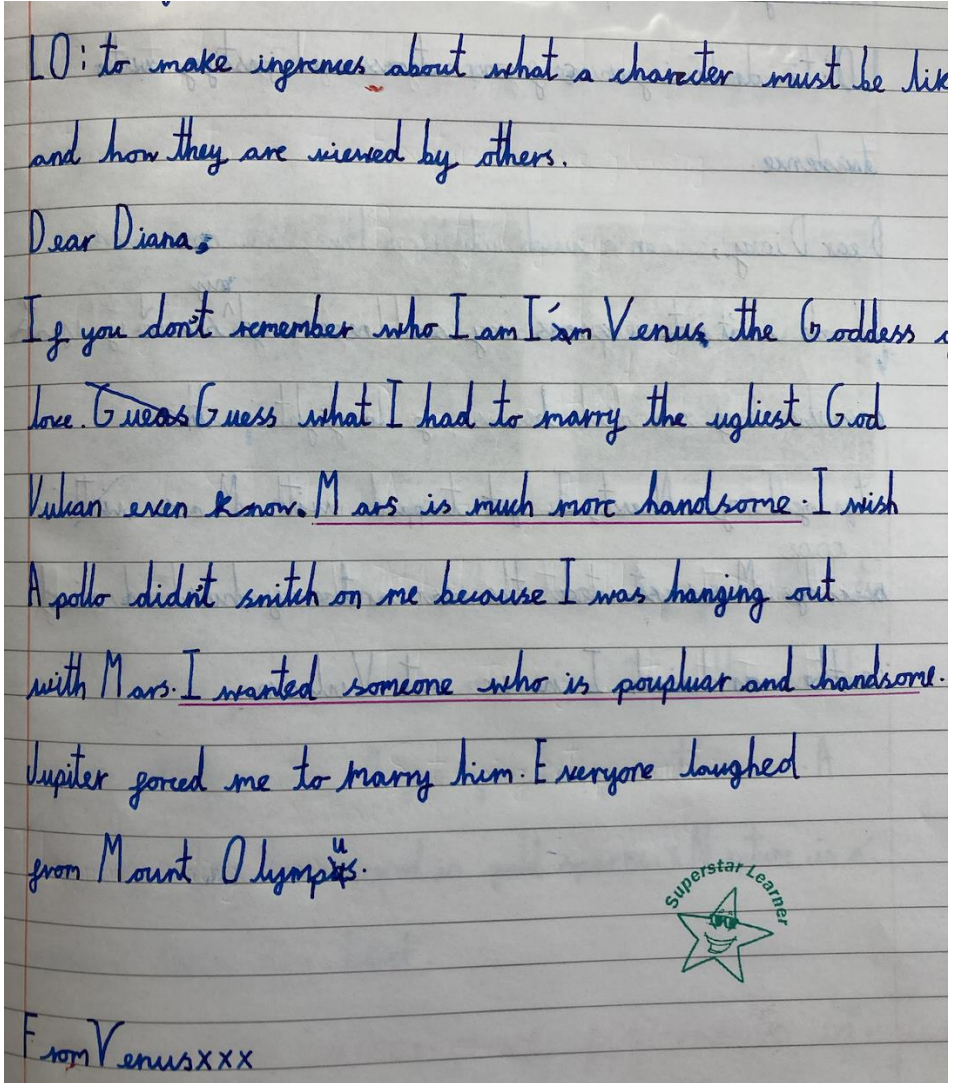 LO: to make ingrences about what a charecter must be lik
and how they are viewed by others.
Dear Diana,
If you don't remember who I am I'am Venus, the Goddess o
love. Gueas Guess what I had to marry the ugliest God
Vulcan even know. Mars is much more handsome. I wish
Apollo didn't snitch on me because I was hanging out
with Mars. I wanted someone who is poupluar and handsome.
Jupiter forced me to marry him. Everyone laughed
from Mount Olympus.
Superstar Learner
From Venus xxx